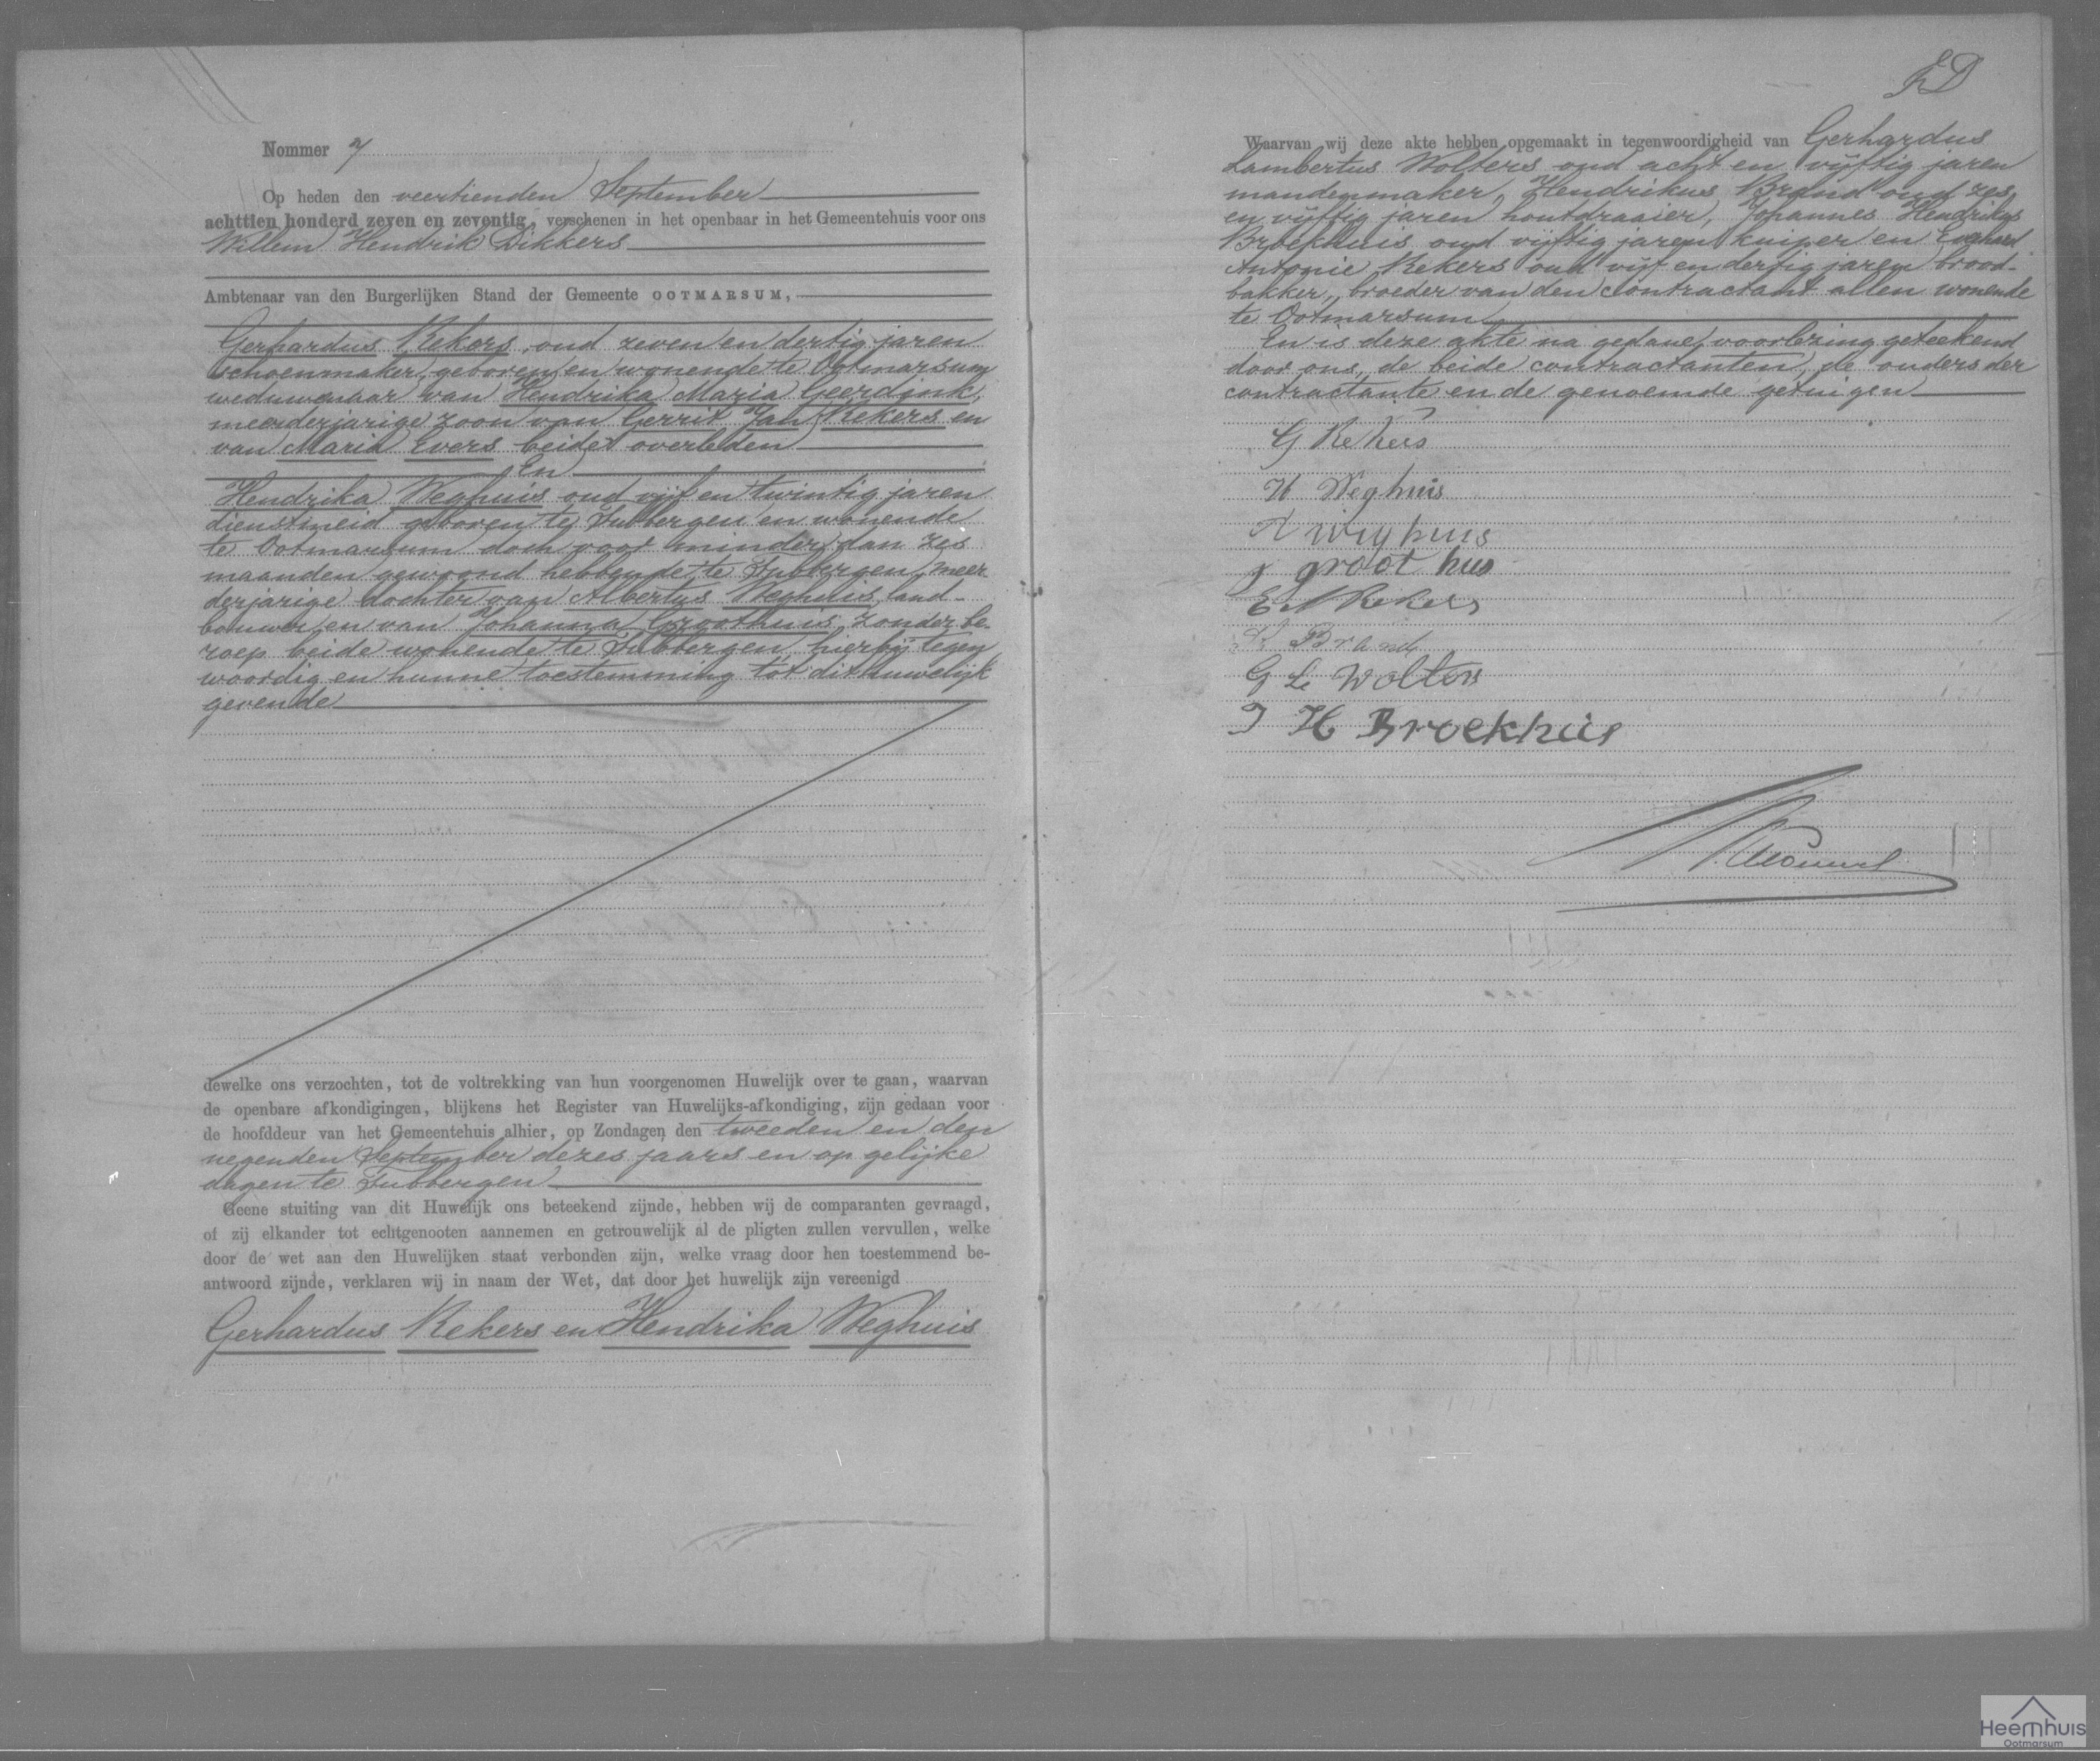 Nommer 7
Op heden den veertienden September
achttien honderd zeven en zeventig, verschenen in het openbaar in het Gemeentehuis voor ons
Willem Hendrik Dikkers
Ambtenaar van den Burgerlijken Stand der Gemeente OOTMARSUM,
Gerhardus Rekers, oud zeven en dertig jaren
schoenmaker, geboren en wonende te Ootmarsum
weduwenaar van Hendrika Maria Geerdink,
meerderjarige zoon van Gerrit Jan Rekers en
van Maria Evers beide overleden
En
Hendrika Weghuis oud vijf en twintig jaren
dienstmeid geboren te Tubbergen en wonende
te Ootmarsum doch voor minder dan zes
maanden gewoond hebbende te Tubbergen, meer
derjarige dochter van Albertus Weghuis land-
bouwer en van Johanna Groothuis zonder be-
roep beide wonende te Tubbergen, hierbij tegen
woordig en hunne toestemming tot dit huwelijk
gevende
dewelke ons verzochten, tot de voltrekking van hun voorgenomen Huwelijk over te gaan, waarvan
de openbare afkondigingen, blijkens het Register van Huwelijks-afkondiging, zijn gedaan voor
de hoofddeur van het Gemeentehuis alhier, op Zondagen den tweeden en den
negenden September dezes jaars en op gelijke
dagen te Tubbergen
Geene stuiting van dit Huwelijk ons beteekend zijnde, hebben wij de comparanten gevraagd,
of zij elkander tot echtgenooten aannemen en getrouwelijk al de pligten zullen vervullen, welke
door de wet aan den Huwelijken staat verbonden zijn, welke vraag door hen toestemmend be-
antwoord zijnde, verklaren wij in naam der Wet, dat door het huwelijk zijn vereenigd
Gerhardus Rekers en Hendrika Weghuis
Waarvan wij deze akte hebben opgemaakt in tegenwoordigheid van Gerhardus
Lambertus Wolters oud acht en vijftig jaren
mandenmaker, Hendrikus Brand oud zes
en vijftig jaren houtdraaier, Johannes Hendrikus
Broekhuis oud vijftig jaren kuiper en Everhard
Antonie Rekers oud vijf en dertig jaren brood-
bakker, broeder van den contractant allen wonende
te Ootmarsum
En is deze akte na gedane voorlezing geteekend
door ons, de beide contractanten, de ouders der
contractante en de genoemde getuigen
G Rekers
H Weghuis
A wighuis
J groot hus
E A Rekers
H Brand
G L Wolters
J H Broekhuis
Heemhuis
Ootmarsum